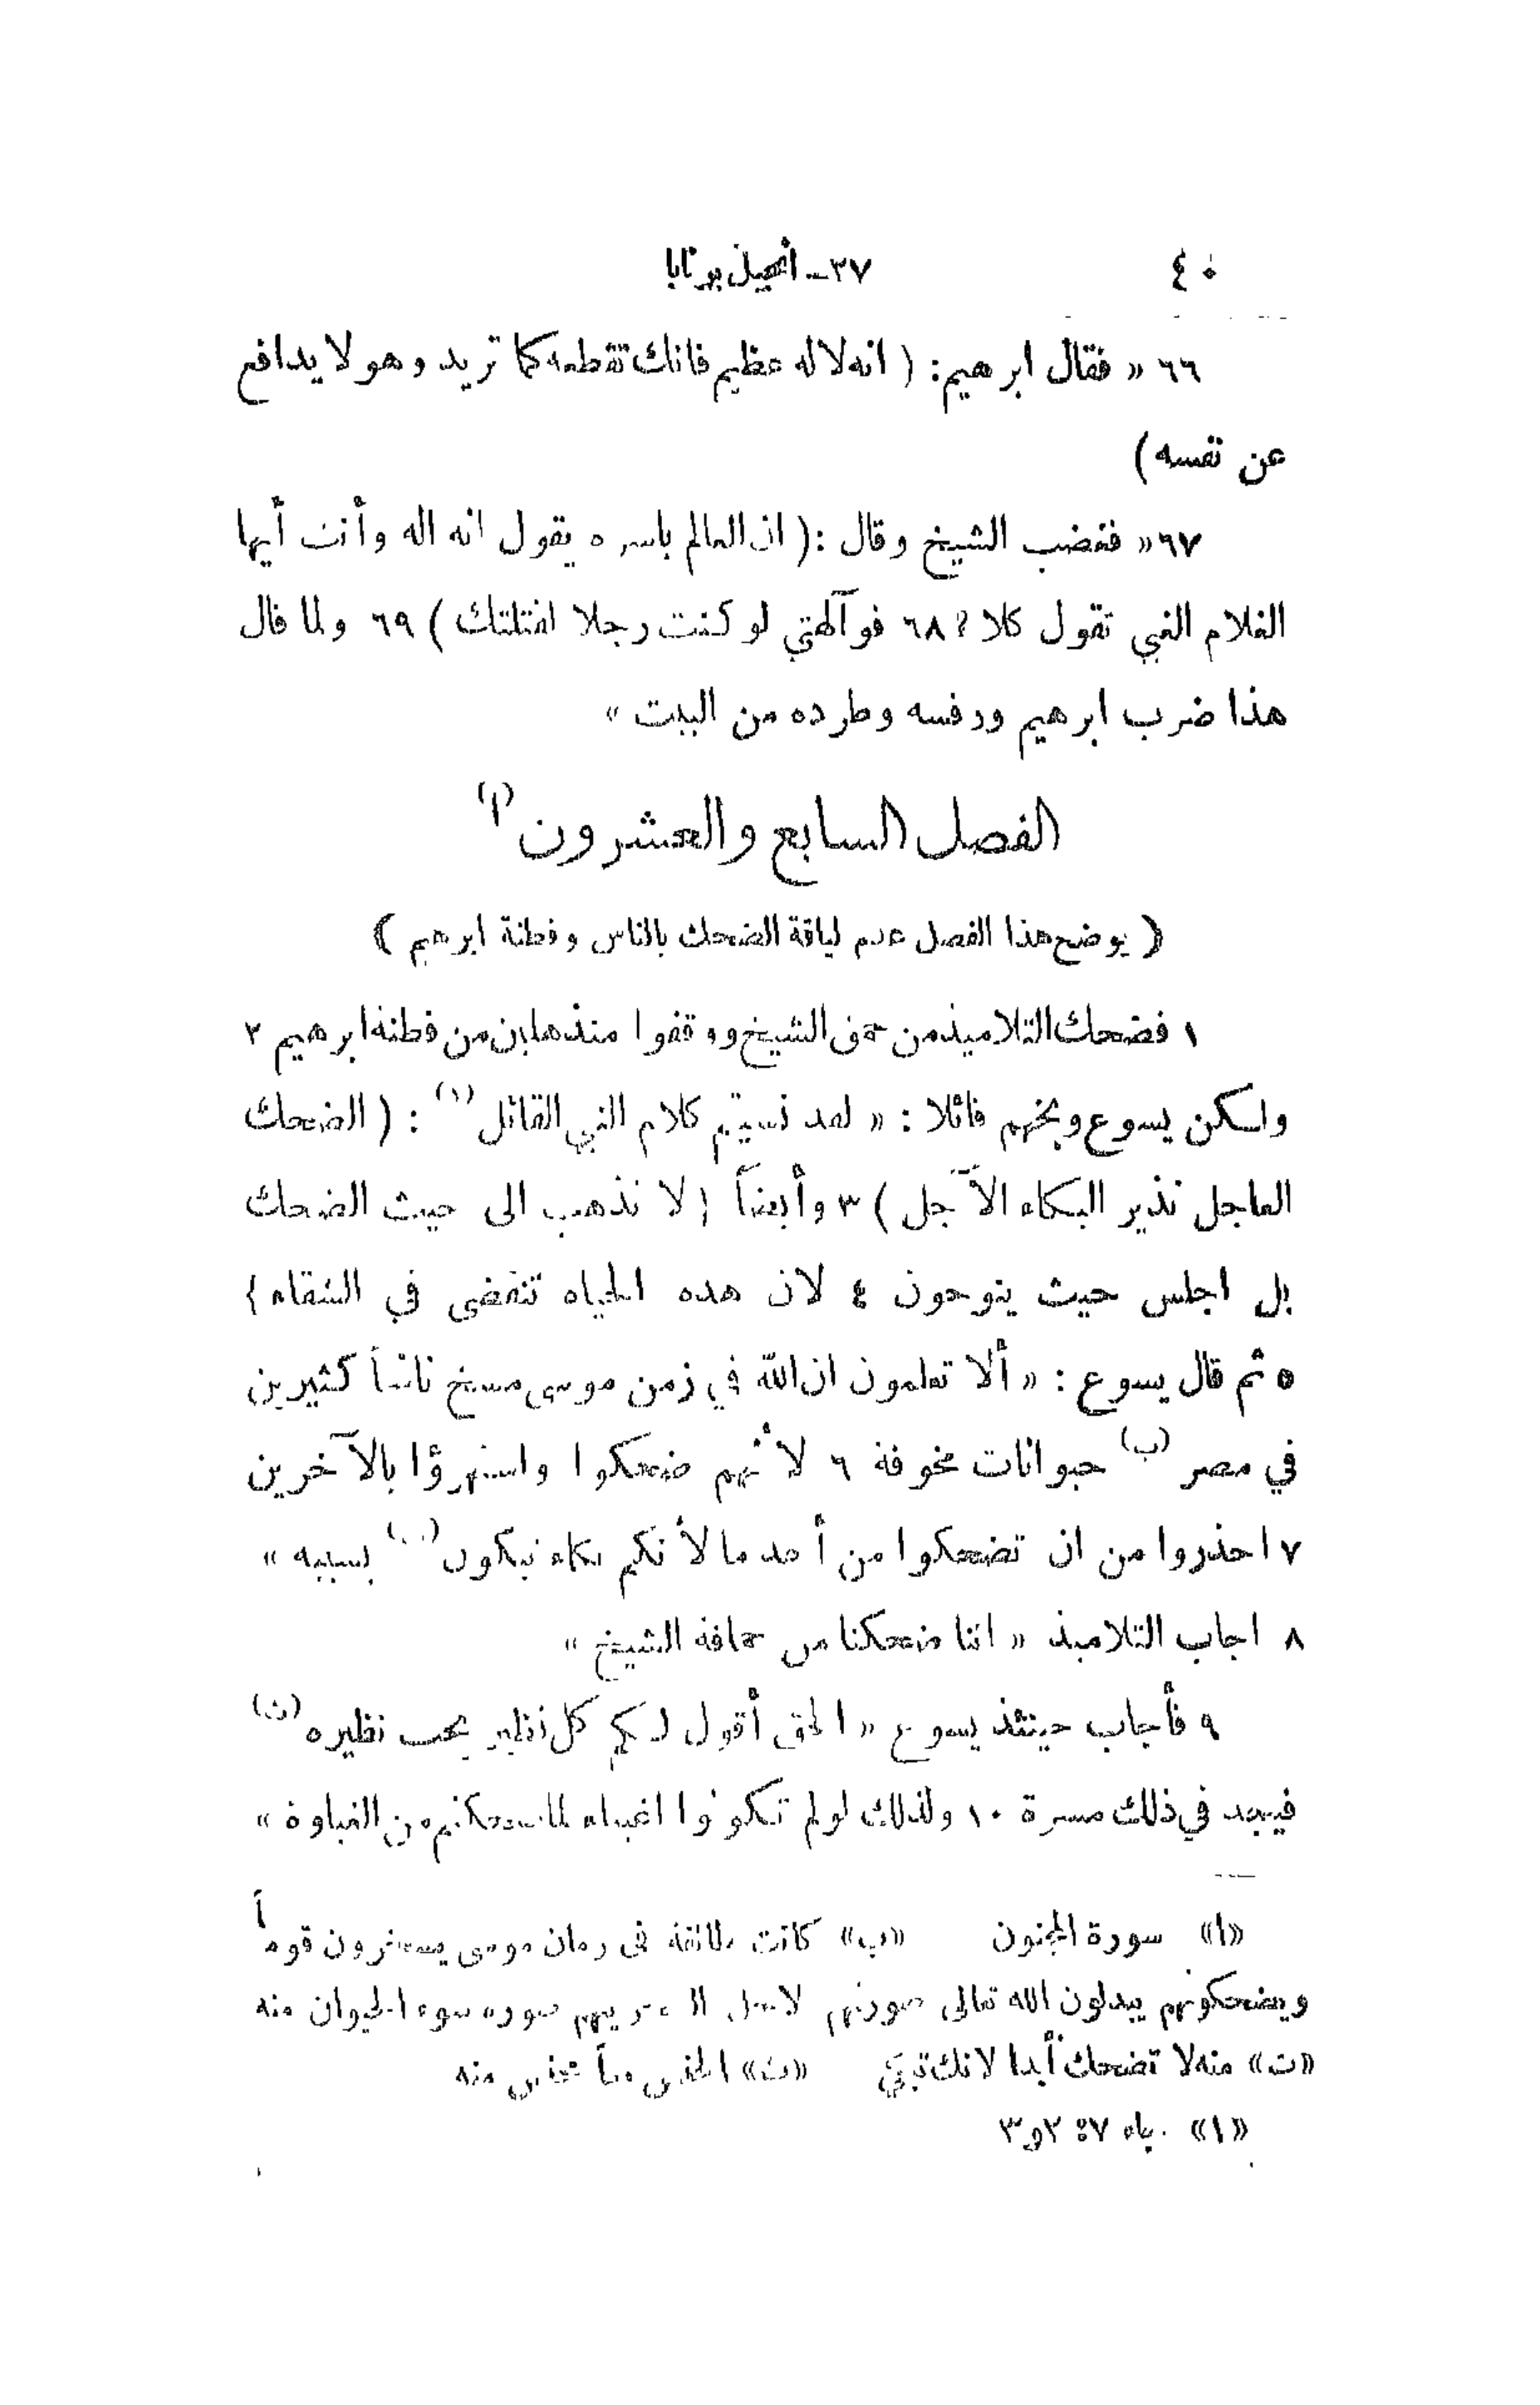 ٤٠ ٢٧- أنجيل برنابا
٦٦ « فقال ابرهيم : ( انه لاله عظيم فانك تقطعه كما تريد وهو لا يدافع
عن نفسه )
٦٧ « فغضب الشيخ وقال : ( ان العالم باسره يقول انه اله وأنت أيها
الغلام الغبي تقول كلا ؟ ٦٨ فوآلهتي لو كنت رجلا لقتلتك ) ٦٩ ولما قال
هذا ضرب ابرهيم ورفسه وطرده من البيت »
الفصل السابع والعشرون (ا)
( يوضح هذا الفصل عدم لياقة الضحك بالناس وفطنة ابرهيم )
١ فضحك التلاميذ من حمق الشيخ ووقفوا منذهلين من فطنة ابرهيم ٢
ولكن يسوع وبخهم قائلا : « لقد نسيتم كلام النبي القائل (١) : ( الضحك
العاجل نذير البكاء الآجل ) ٣ وأيضاً ( لا تذهب الى حيث الضحك
بل اجلس حيث ينوحون ٤ لان هذه الحياة تنقضى في الشقاء )
٥ ثم قال يسوع : « ألا تعلمون ان الله في زمن موسى مسخ ناساً كثيرين
في مصر (ب) حيوانات مخوفة ٦ لأنهم ضحكوا واستهزؤا بالآخرين
٧ احذروا من ان تضحكوا من أحد ما لأنكم بكاء تبكون (ت) بسببه »
٨ اجاب التلاميذ « اننا ضحكنا من حماقة الشيخ »
٩ فأجاب حينئذ يسوع « الحق أقول لكم كل نظير يحب نظيره (ث)
فيجد في ذلك مسرة ١٠ ولذلك لو لم تكونوا اغبياء لما ضحكتم من الغباوة »
«ا» سورة المجنون «ب» كانت طائفة فى زمان موسى يسخرون قوماً
ويضحكونهم يبدلون الله تعالى صورتهم صورة سوء الحيوان منه
«ت» منه لا تضحك أبدا لانك تبكي «ث» الجنس منه
«١» جا ٧ : ٢ و ٣